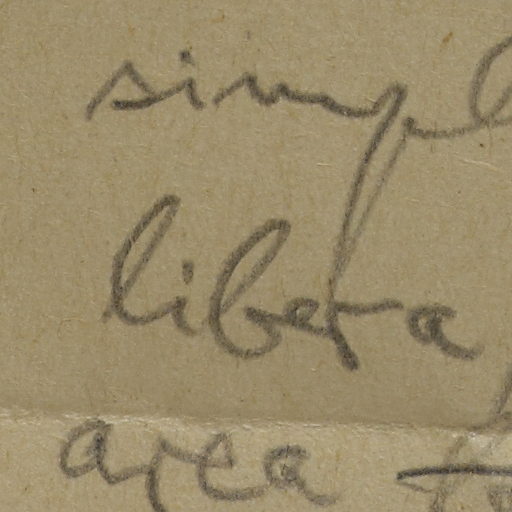 simpl
libera
area